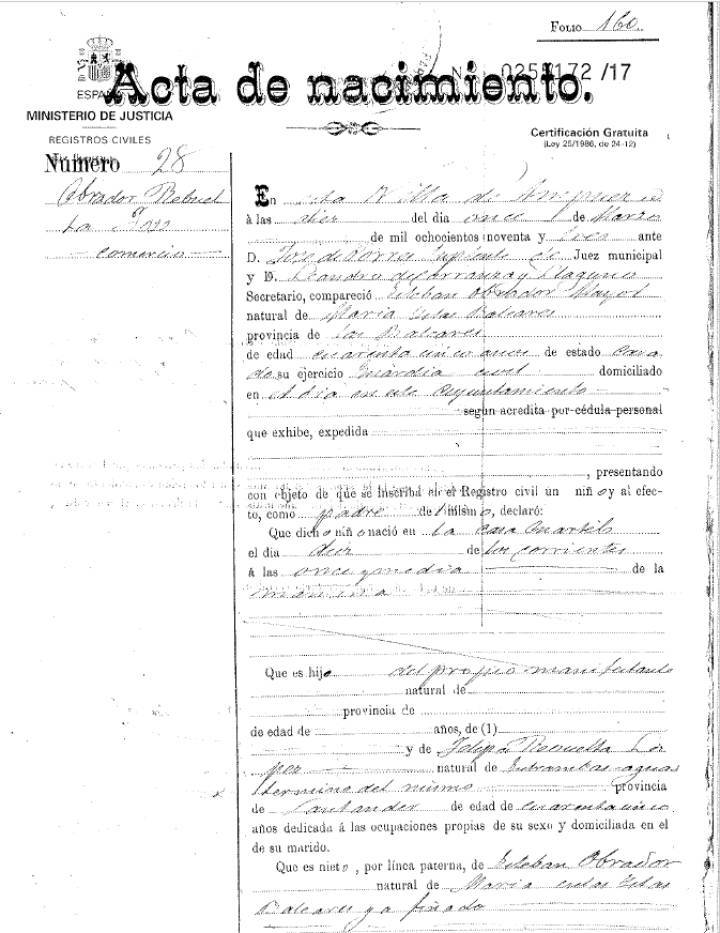 FOLIO 160.
ESPAÑA
Acta de nacimiento.
/17
MINISTERIO DE JUSTICIA
REGISTROS CIVILES
Certificación Gratuita
(Ley 25/1986, de 24-12)
Número 28
Obrador
comercio
En esta Villa de Ampuero
á las diez del dia once de Marzo
de mil ochocientos noventa y tres ante
D. José de Juez municipal
y D. Leandro de
Secretario, compareció Esteban Obrador
natural de Maria Islas Baleares
provincia de las Baleares
de edad cuarenta de estado casa
do su ejercicio Guardia civil domiciliado
en el dia en este Ayuntamiento
según acredita por cédula personal
que exhibe, expedida
, presentando
con objeto de que se inscriba en el Registro civil un niño y al efec-
to, como padre del mismo, declaró:
Que dicho niño nació en la casa cuartel
el dia diez de los corrientes
á las once y media de la
mañana
Que es hijo del propio manifestante
natural de
provincia de
de edad de años, de (1)
y de Felipa Revuelta Lo
pez natural de Entrambasaguas
termino del mismo provincia
de Santander de edad de cuarenta
años dedicada á las ocupaciones propias de su sexo y domiciliada en el
de su marido.
Que es nieto, por línea paterna, de Esteban Obrador
natural de Maria en las Islas
Baleares ya finado